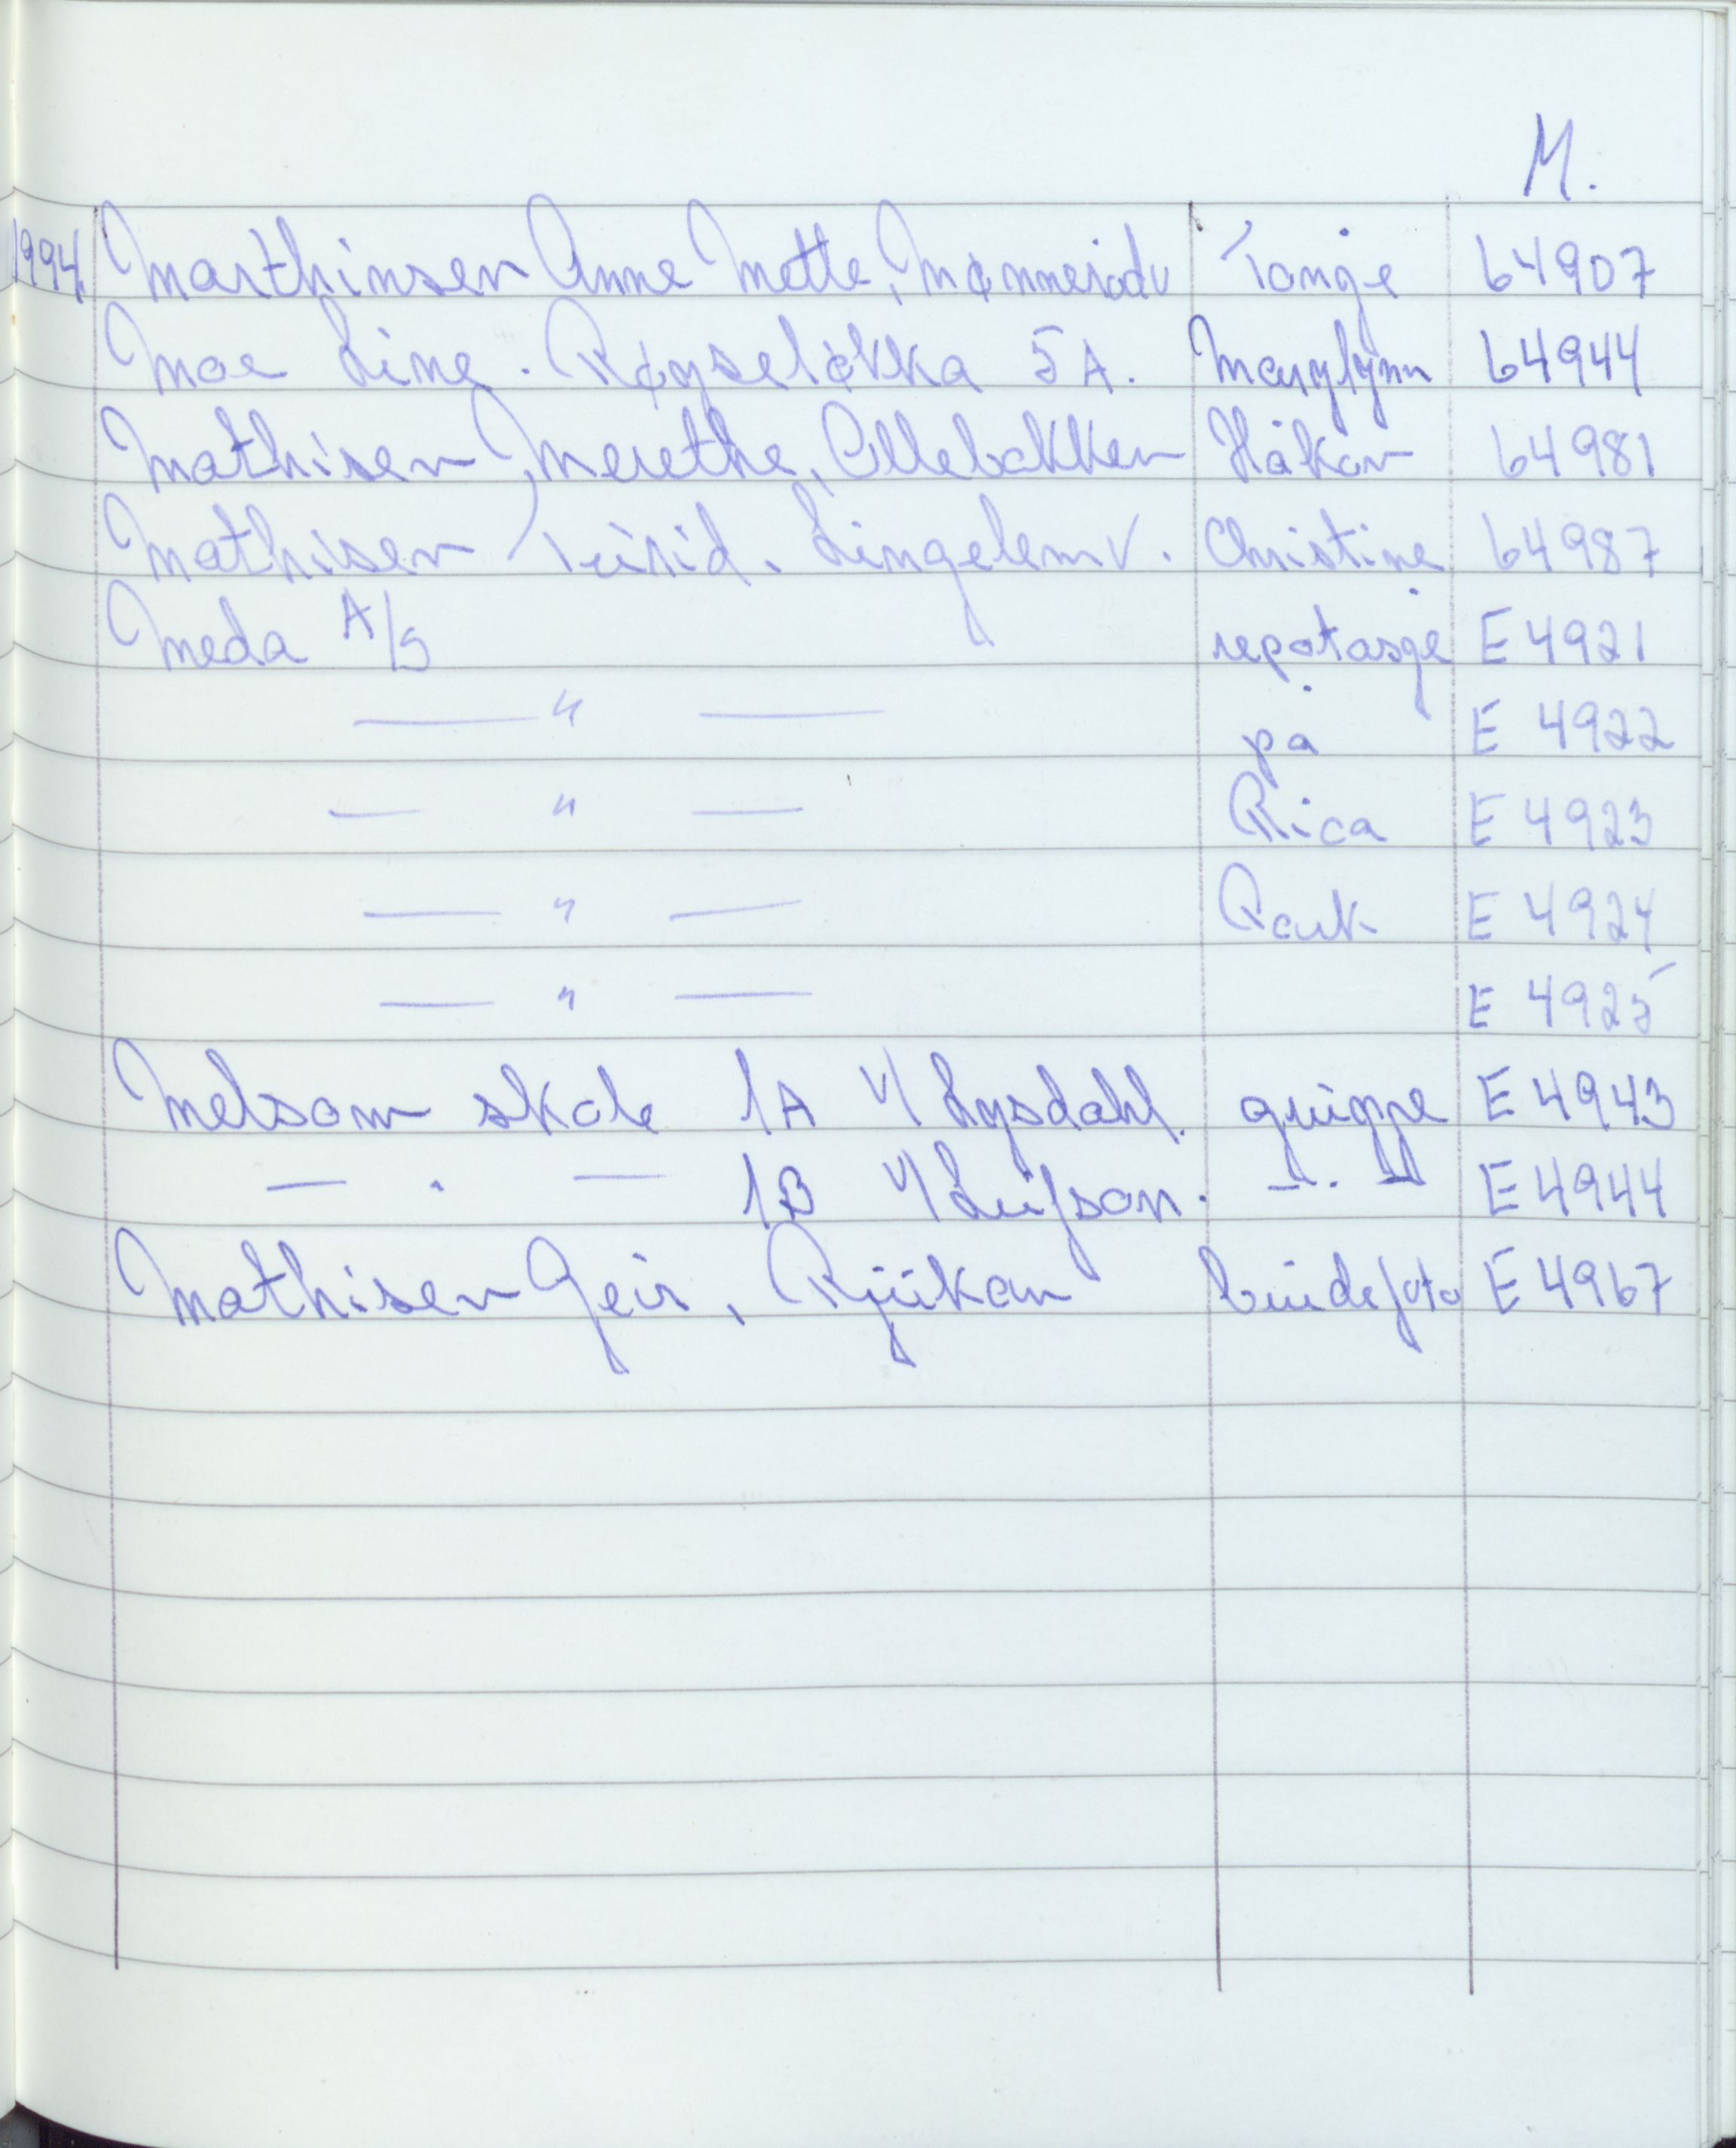 M.
1994. Marthinsen Anne Mette, Mømmerødv Tonje 64907
Moe Line. Røyseløkka 5A. Marylynn 64944
Mathisen Merethe, Ollebakken Håkon 64981
Mathisen Turid. Lingelemv. Christine 64987
Meda A/S repotasje E 4921
— " — på E 4922
— " — Rica E 4923
— " — Park E 4924
— " — E 4925
Melsom skole 1A v/ Lysdahl. gruppe E 4943
— . — 1B v/ Leifson. — . — E 4944
Mathisen Geir, Rjukan brudefoto E 4967